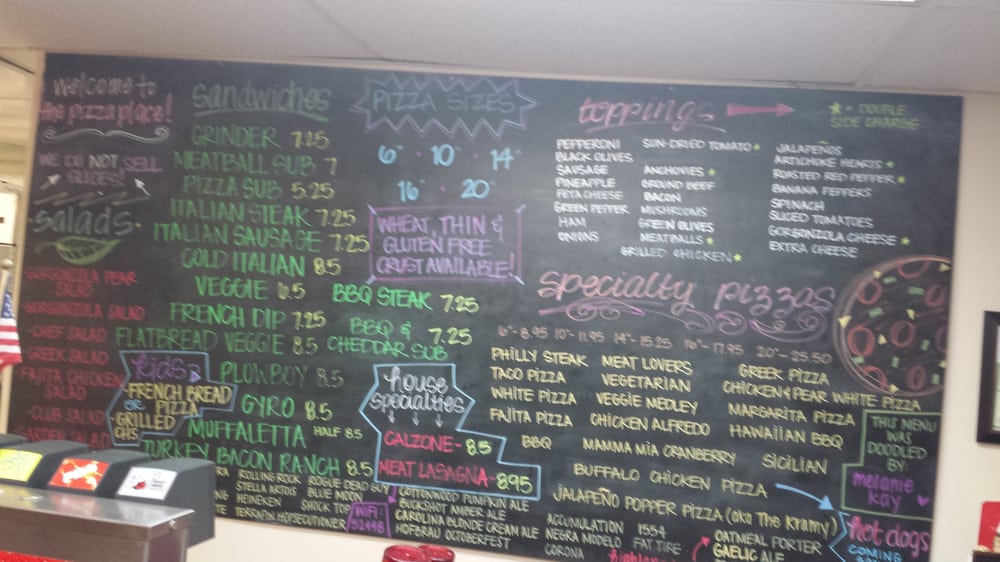 welcome to
the pizza place!
WE DO NOT SELL
SLICES!
salads
GORGONZOLA PEAR
SALAD
GORGONZOLA SALAD
-CHEF SALAD
GREEK SALAD
FAJITA CHICKEN
SALAD
-CLUB SALAD
GARDEN SALAD
sandwiches
GRINDER 7.25
MEATBALL SUB 7
PIZZA SUB 5.25
ITALIAN STEAK 7.25
ITALIAN SAUSAGE 7.25
COLD ITALIAN 8.5
VEGGIE 6.5
FRENCH DIP 7.25
FLATBREAD VEGGIE 8.5
PLOWBOY 8.5
GYRO 8.5
MUFFALETTA HALF 8.5
TURKEY BACON RANCH 8.5
BBQ STEAK 7.25
BBQ &
CHEDDAR SUB 7.25
kids
FRENCH BREAD
PIZZA
OR
GRILLED
CHS
PIZZA SIZES
6" · 10" · 14"
16" · 20"
WHEAT, THIN &
GLUTEN FREE
CRUST AVAILABLE!
house
specialties
CALZONE - 8.5
MEAT LASAGNA - 8.95
toppings
★ = DOUBLE
SIDE CHARGE
PEPPERONI
BLACK OLIVES
SAUSAGE
PINEAPPLE
FETA CHEESE
GREEN PEPPER
HAM
ONIONS
SUN-DRIED TOMATO ★
ANCHOVIES ★
GROUND BEEF
BACON
MUSHROOMS
GREEN OLIVES
MEATBALLS ★
GRILLED CHICKEN ★
JALAPEÑOS
ARTICHOKE HEARTS ★
ROASTED RED PEPPER ★
BANANA PEPPERS
SPINACH
SLICED TOMATOES
GORGONZOLA CHEESE ★
EXTRA CHEESE
specialty pizzas
6"-8.95 10"-11.95 14"-15.25 16"-17.95 20"-25.50
PHILLY STEAK
TACO PIZZA
WHITE PIZZA
FAJITA PIZZA
BBQ
MEAT LOVERS
VEGETARIAN
VEGGIE MEDLEY
CHICKEN ALFREDO
MAMMA MIA CRANBERRY
GREEK PIZZA
CHICKEN & PEAR WHITE PIZZA
MARGARITA PIZZA
HAWAIIAN BBQ
SICILIAN
BUFFALO CHICKEN PIZZA
JALAPEÑO POPPER PIZZA (aka The Kramy)
THIS MENU
WAS
DOODLED
BY:
melanie
kay
hot dogs
COMING
ROLLING ROCK
STELLA ARTOIS
HEINEKEN
TERRAPIN HOPSECUTIONER
ROGUE DEAD GUY
BLUE MOON
SHOCK TOP
WIFI:
52448
COTTONWOOD PUMPKIN ALE
BUCKSHOT AMBER ALE
CAROLINA BLONDE CREAM ALE
HOFBRAU OCTOBERFEST
ACCUMULATION
NEGRA MODELO
CORONA
1554
FAT TIRE
OATMEAL PORTER
GAELIC ALE